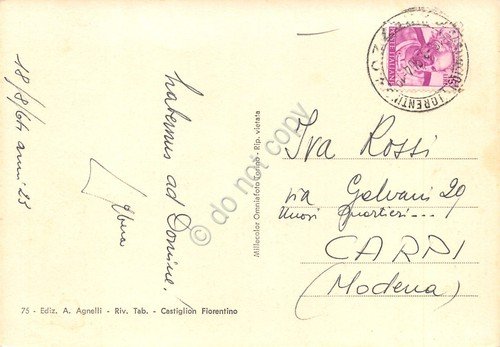 18/8/64 anni 25
habemus ad Domine.
Ebera
75 - Ediz. A. Agnelli - Riv. Tab. - Castiglion Fiorentino
Millecolor Omniafoto Torino - Rip. vietata
do not copy
Iva Rossi
via Galvani 29
Nuovi Quartieri---!
CARPI
(Modena)